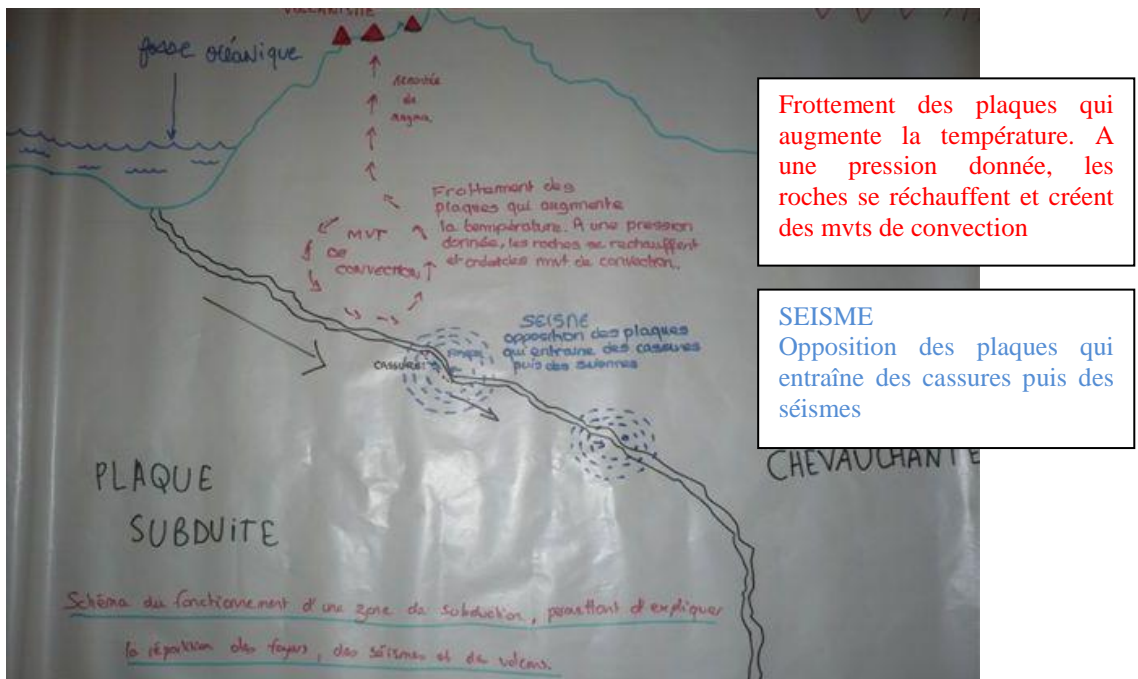 VOLCANISME
fosse océanique
remontée
de
magma.
Frottement des
plaques qui augmente
la température. A une pression
donnée, les roches se rechauffent
et créatdes mvt de convection.
MVT
DE
CONVECTION
SEISME
opposition des plaques
qui entraine des cassures
puis des seismes
CASSURE
PLAQUE
SUBDUITE
CHEVAUCHANTE
Schéma du fonctionnement d'une zone de subduction, permettant d'expliquer
la répartition des foyers, des séismes et de volcans.
Frottement des plaques qui
augmente la température. A
une pression donnée, les
roches se réchauffent et créent
des mvts de convection
SEISME
Opposition des plaques qui
entraîne des cassures puis des
séismes